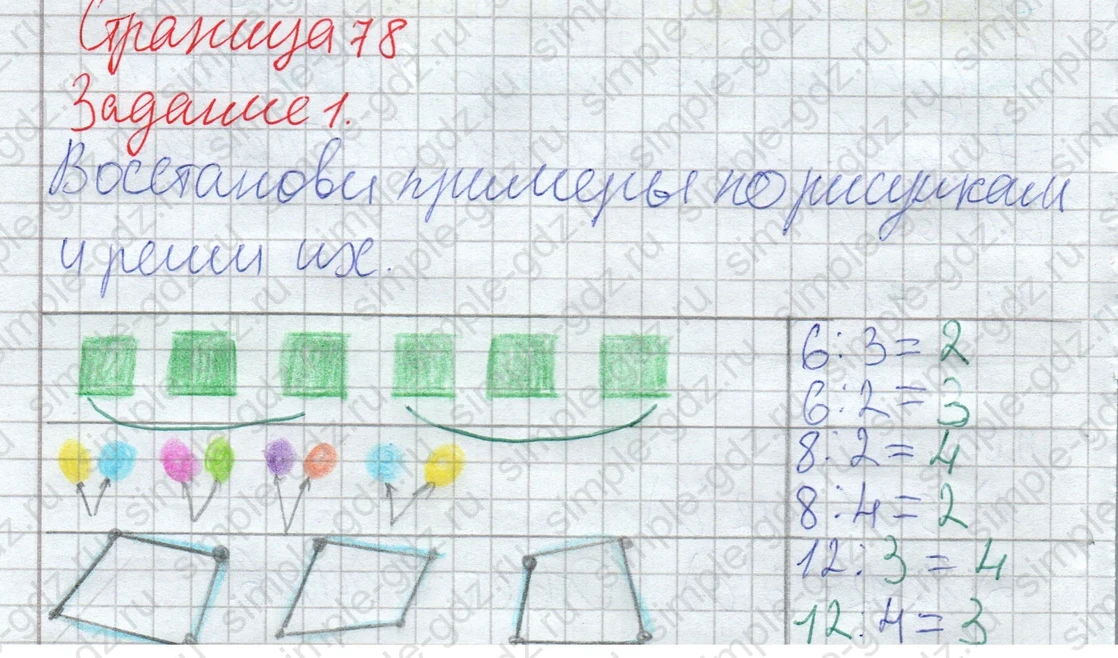 Страница 78
Задание 1.
Восстанови примеры по рисункам
и реши их.
6 : 3 = 2
6 : 2 = 3
8 : 2 = 4
8 : 4 = 2
12 : 3 = 4
12 : 4 = 3
simple-gdz.ru